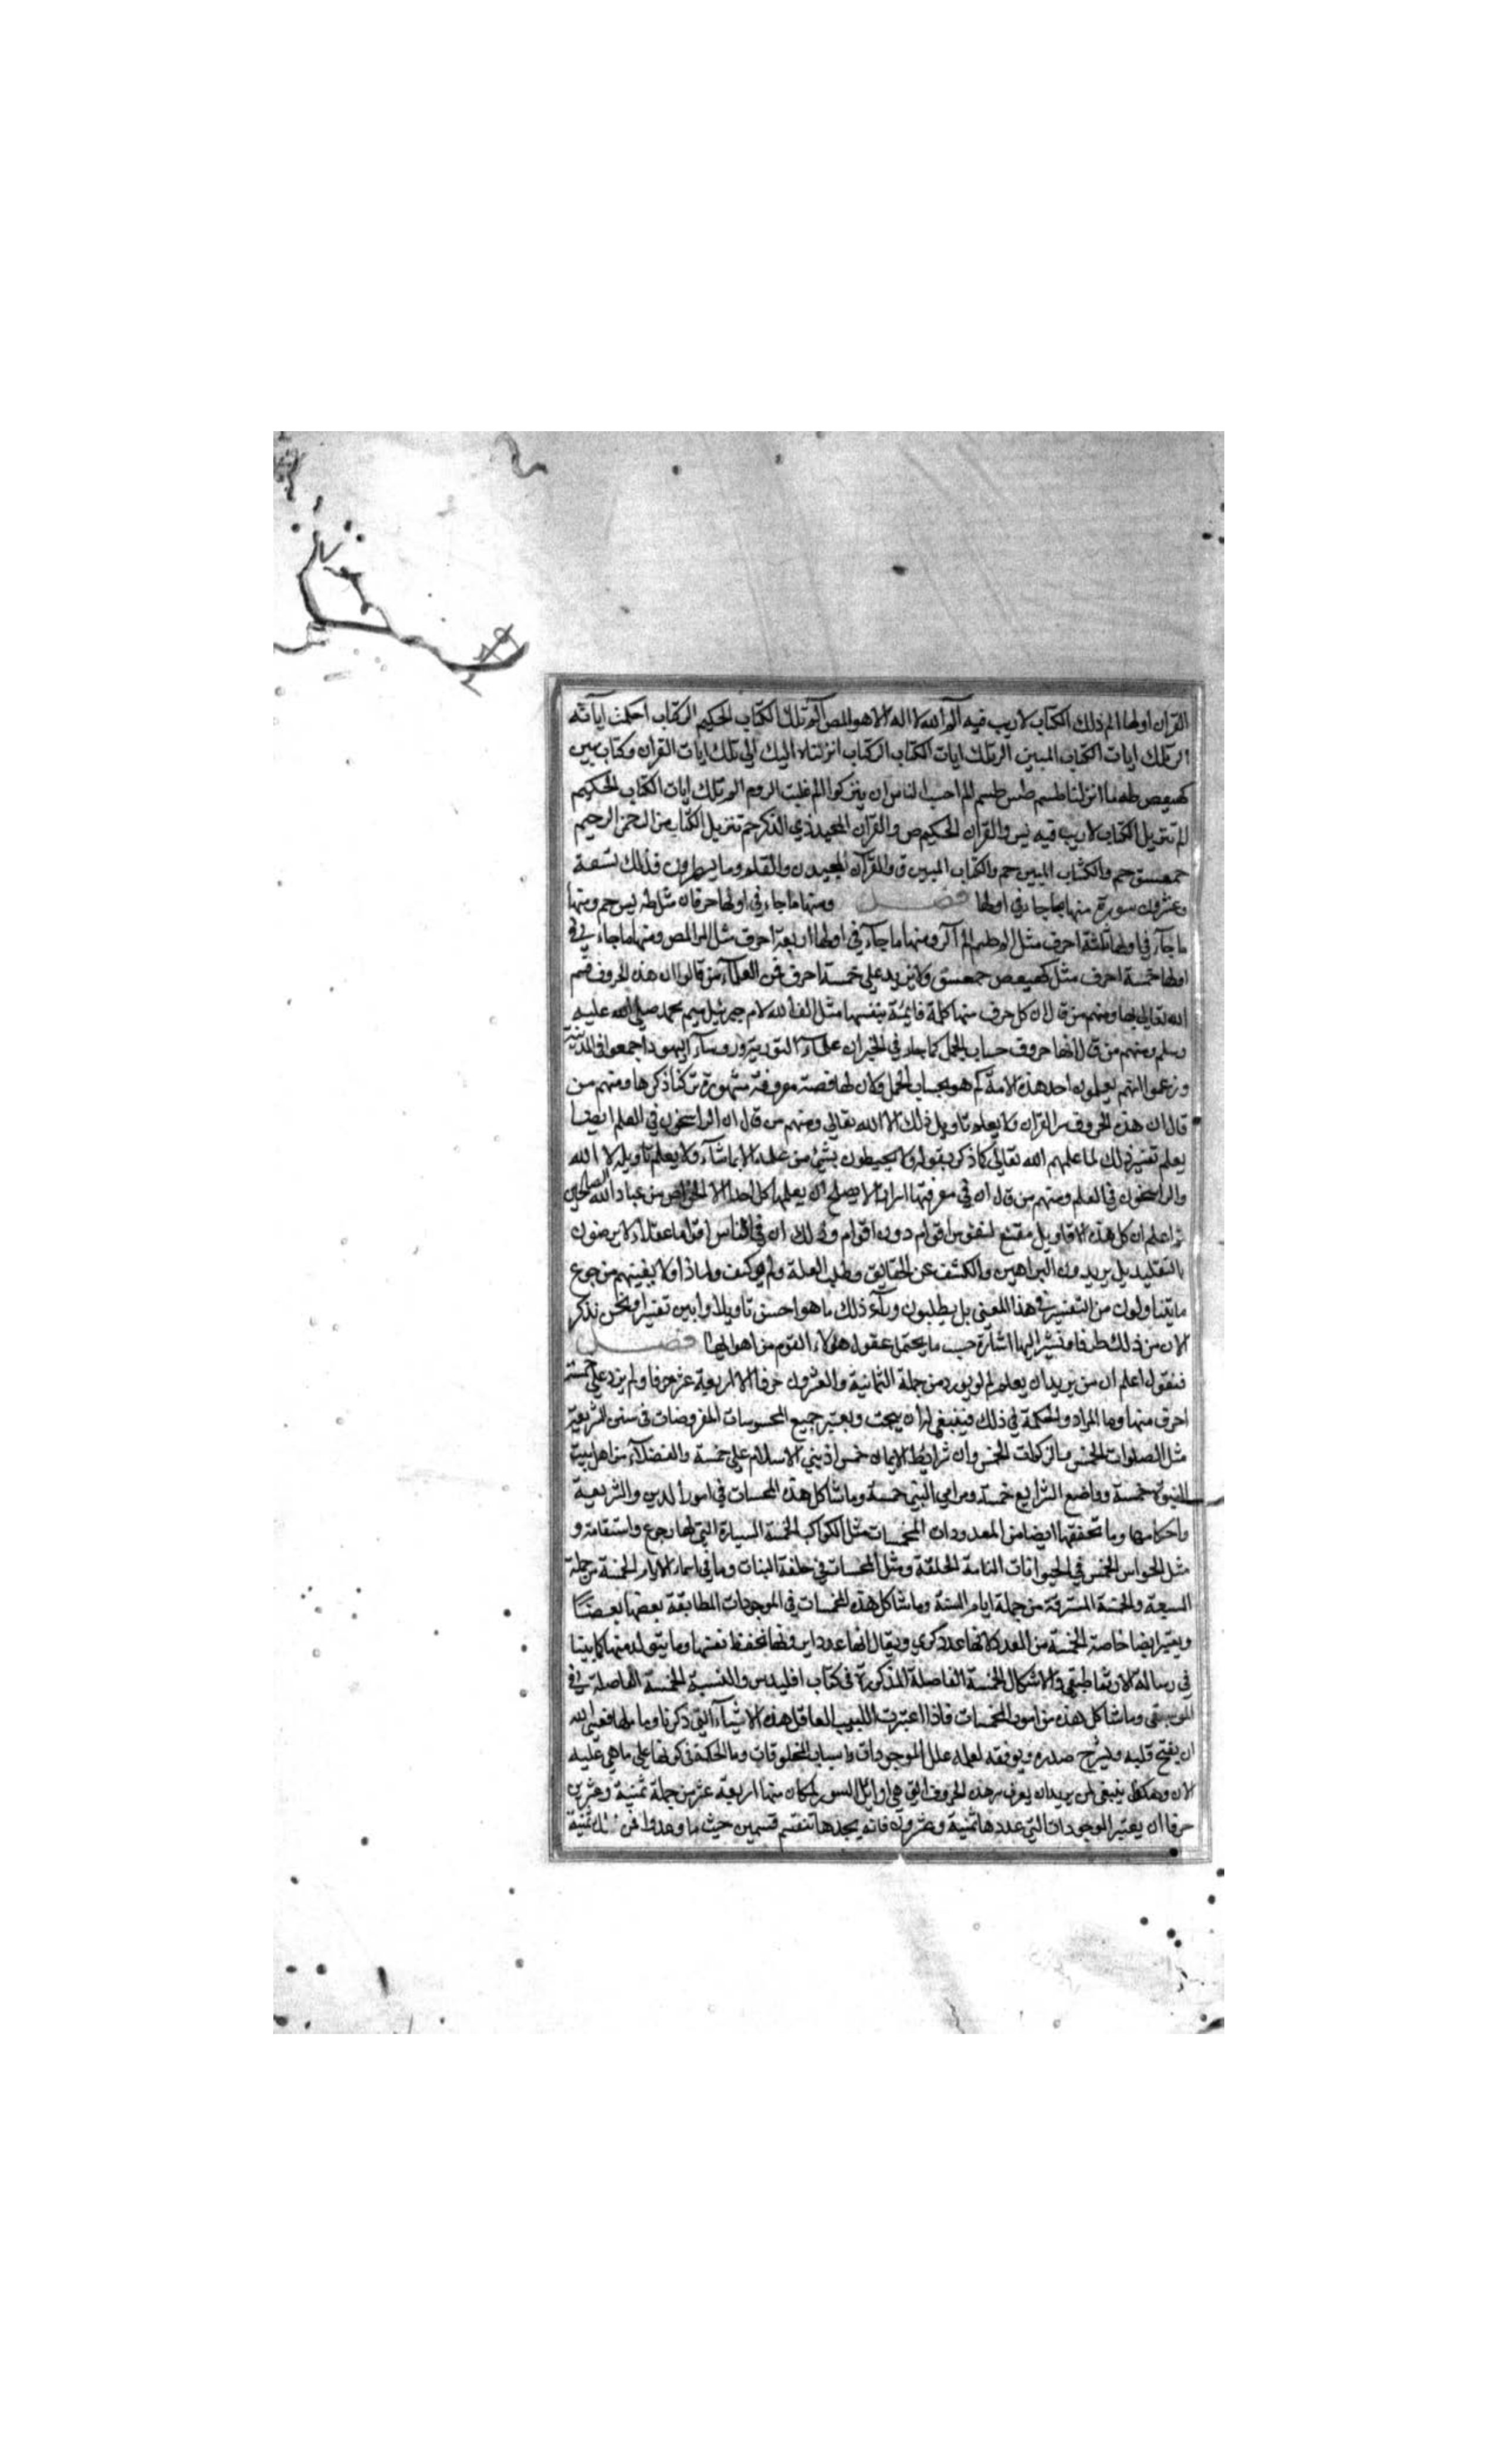 القران اولها الم ذلك الكتاب لا ريب فيه الم الله لا اله الا هو المص الر تلك الكتاب الحكيم الر كتاب احكمت اياته
الر تلك ايات الكتاب المبين الر تلك ايات الكتاب الر كتاب انزلناه اليك الر تلك ايات القران وكتاب مبين
كهيعص طه ما انزلنا طسم طس طسم الم احسب الناس ان يتركوا الم غلبت الروم الم تلك ايات الكتاب الحكيم
الم تنزيل الكتاب لا ريب فيه يس والقران الحكيم ص والقران المجيد ذي الذكر حم تنزيل الكتاب من الرحمن الرحيم
حمعسق حم والكتاب المبين حم والكتاب المبين ق والقرآن المجيد ن والقلم وما يسطرون فذلك تسعة
وعشرون سورة منها ما جاء في اولها فصل ومنها ما جاء في اولها حرفان مثل طه يس حم ومنها
ما جآء في اولها ثلثة احرف مثل الم طسم الر ومنها ما جآء في اولها اربعة احرف مثل المر المص ومنها ما جاء في
اولها خمسة احرف مثل كهيعص حمعسق ولا يزيد على خمسة احرف فمن العلمآء من قالوا ان هذه الحروف قسم
الله تعالى بها ومنهم من قال ان كل حرف منها كلمة قائمة بنفسها مثل الف الله لام جبرئيل ميم محمد صلى الله عليه
وسلم ومنهم من قال انها حروف حساب الجمل كما جاء في الخبر ان علمآء التورية ورؤسآء اليهود اجتمعوا في المدينة
وزعموا انهم يعلمون احد هذه الامة كم هو بحساب الجمل وكان لها قصة معروفة مشهورة تركنا ذكرها ومنهم من
قال ان هذه الحروف سر القران ولا يعلم تاويل ذلك الا الله تعالى ومنهم من قال ان الراسخون في العلم ايضا
يعلم تفسير ذلك لما علمهم الله تعالى كما ذكر بقوله ولا يحيطون بشئ من علمه الا بما شآء ولا يعلم تاويله الا الله
والراسخون في العلم ومنهم من قال ان في معرفتها اسرارا لا يصلح ان يعلمها كل احد الا الخواص من عباد الله الصالحين
ثم اعلم ان كل هذه الاقاويل مقنع لنفوس اقوام دون اقوام وذلك ان في الناس اقواما عقلاء لا يرضون
بالتقليد بل يريدون البراهين والكشف عن الحقايق وطلب العلة ولم وكيف ولماذا ولا يغنيهم من جوع
ما يتناولون من التفسير في هذا المعنى بل يطلبون ورآء ذلك ما هو احسن تاويلا وابين تفسيرا ونحن نذكر
الان من ذلك طرفا ونشير اليها اشارة حسب ما يحتمل عقول هؤلاء القوم من اهوالها فصل
فنقول اعلم ان من يريد ان يعلم لم لم يورد من جملة الثمانية والعشرون حرفا الا اربعة عشر حرفا ولم يزد على خمسة
احرف منها وما المراد والحكمة في ذلك فينبغي له ان يبحث ويعتبر جميع المحسوسات المفروضات في سنن الشريعة
مثل الصلوات الخمس والزكوات الخمس وان شرائط الايمان خمس اذ بني الاسلام على خمسة والفضلاء من اهل بيت
النبوة خمسة وواضع الشرايع خمسة ومرامي البيت خمسة وما شاكل هذه المخمسات في امور الدين والشريعة
واحكامها وما تحققها ايضا من المعدودات المخمسات مثل الكواكب الخمسة السيارة التي لها رجوع واستقامة و
مثل الحواس الخمس في الحيوانات التامة الخلقة ومثل المخمسات في خلقة النبات وما في اسماء الايام الخمسة من جملة
السبعة والخمسة المسترقة من جملة ايام السنة وما شاكل هذه المخمسات في الموجودات المطابقة بعضها بعضا
ويعتبر ايضا خاصة الخمسة من العدد لانها عدد كري ويقال انها عدد داير وانها تحفظ نفسها وما يتولد منها كما بينا
في رسالة الارثماطيقي والاشكال الخمسة الفاصلة المذكورة في كتاب اقليدس والنسبة الخمسة الفاصلة في
الموسيقى وما شاكل هذه من امور المخمسات فاذا اعتبرت اللبيب العاقل هذه الاشيآء التي ذكرنا وما مثلها فعسى الله
ان يفتح قلبه ويشرح صدره ويوفقه لعلمه علل الموجودات واسباب المخلوقات وما الحكمة في كونها على ما هي عليه
الان وهكذا ينبغي لمن يريد ان يعرف سر هذه الحروف التي هي اوائل السور لم كان منها اربعة عشر من جملة ثمنية وعشرين
حرفا ان يعتبر الموجودات التي عددها ثمنية وعشرون فانه يجدها تنقسم قسمين حيث ما وجدوا فمن ذلك ثمنية